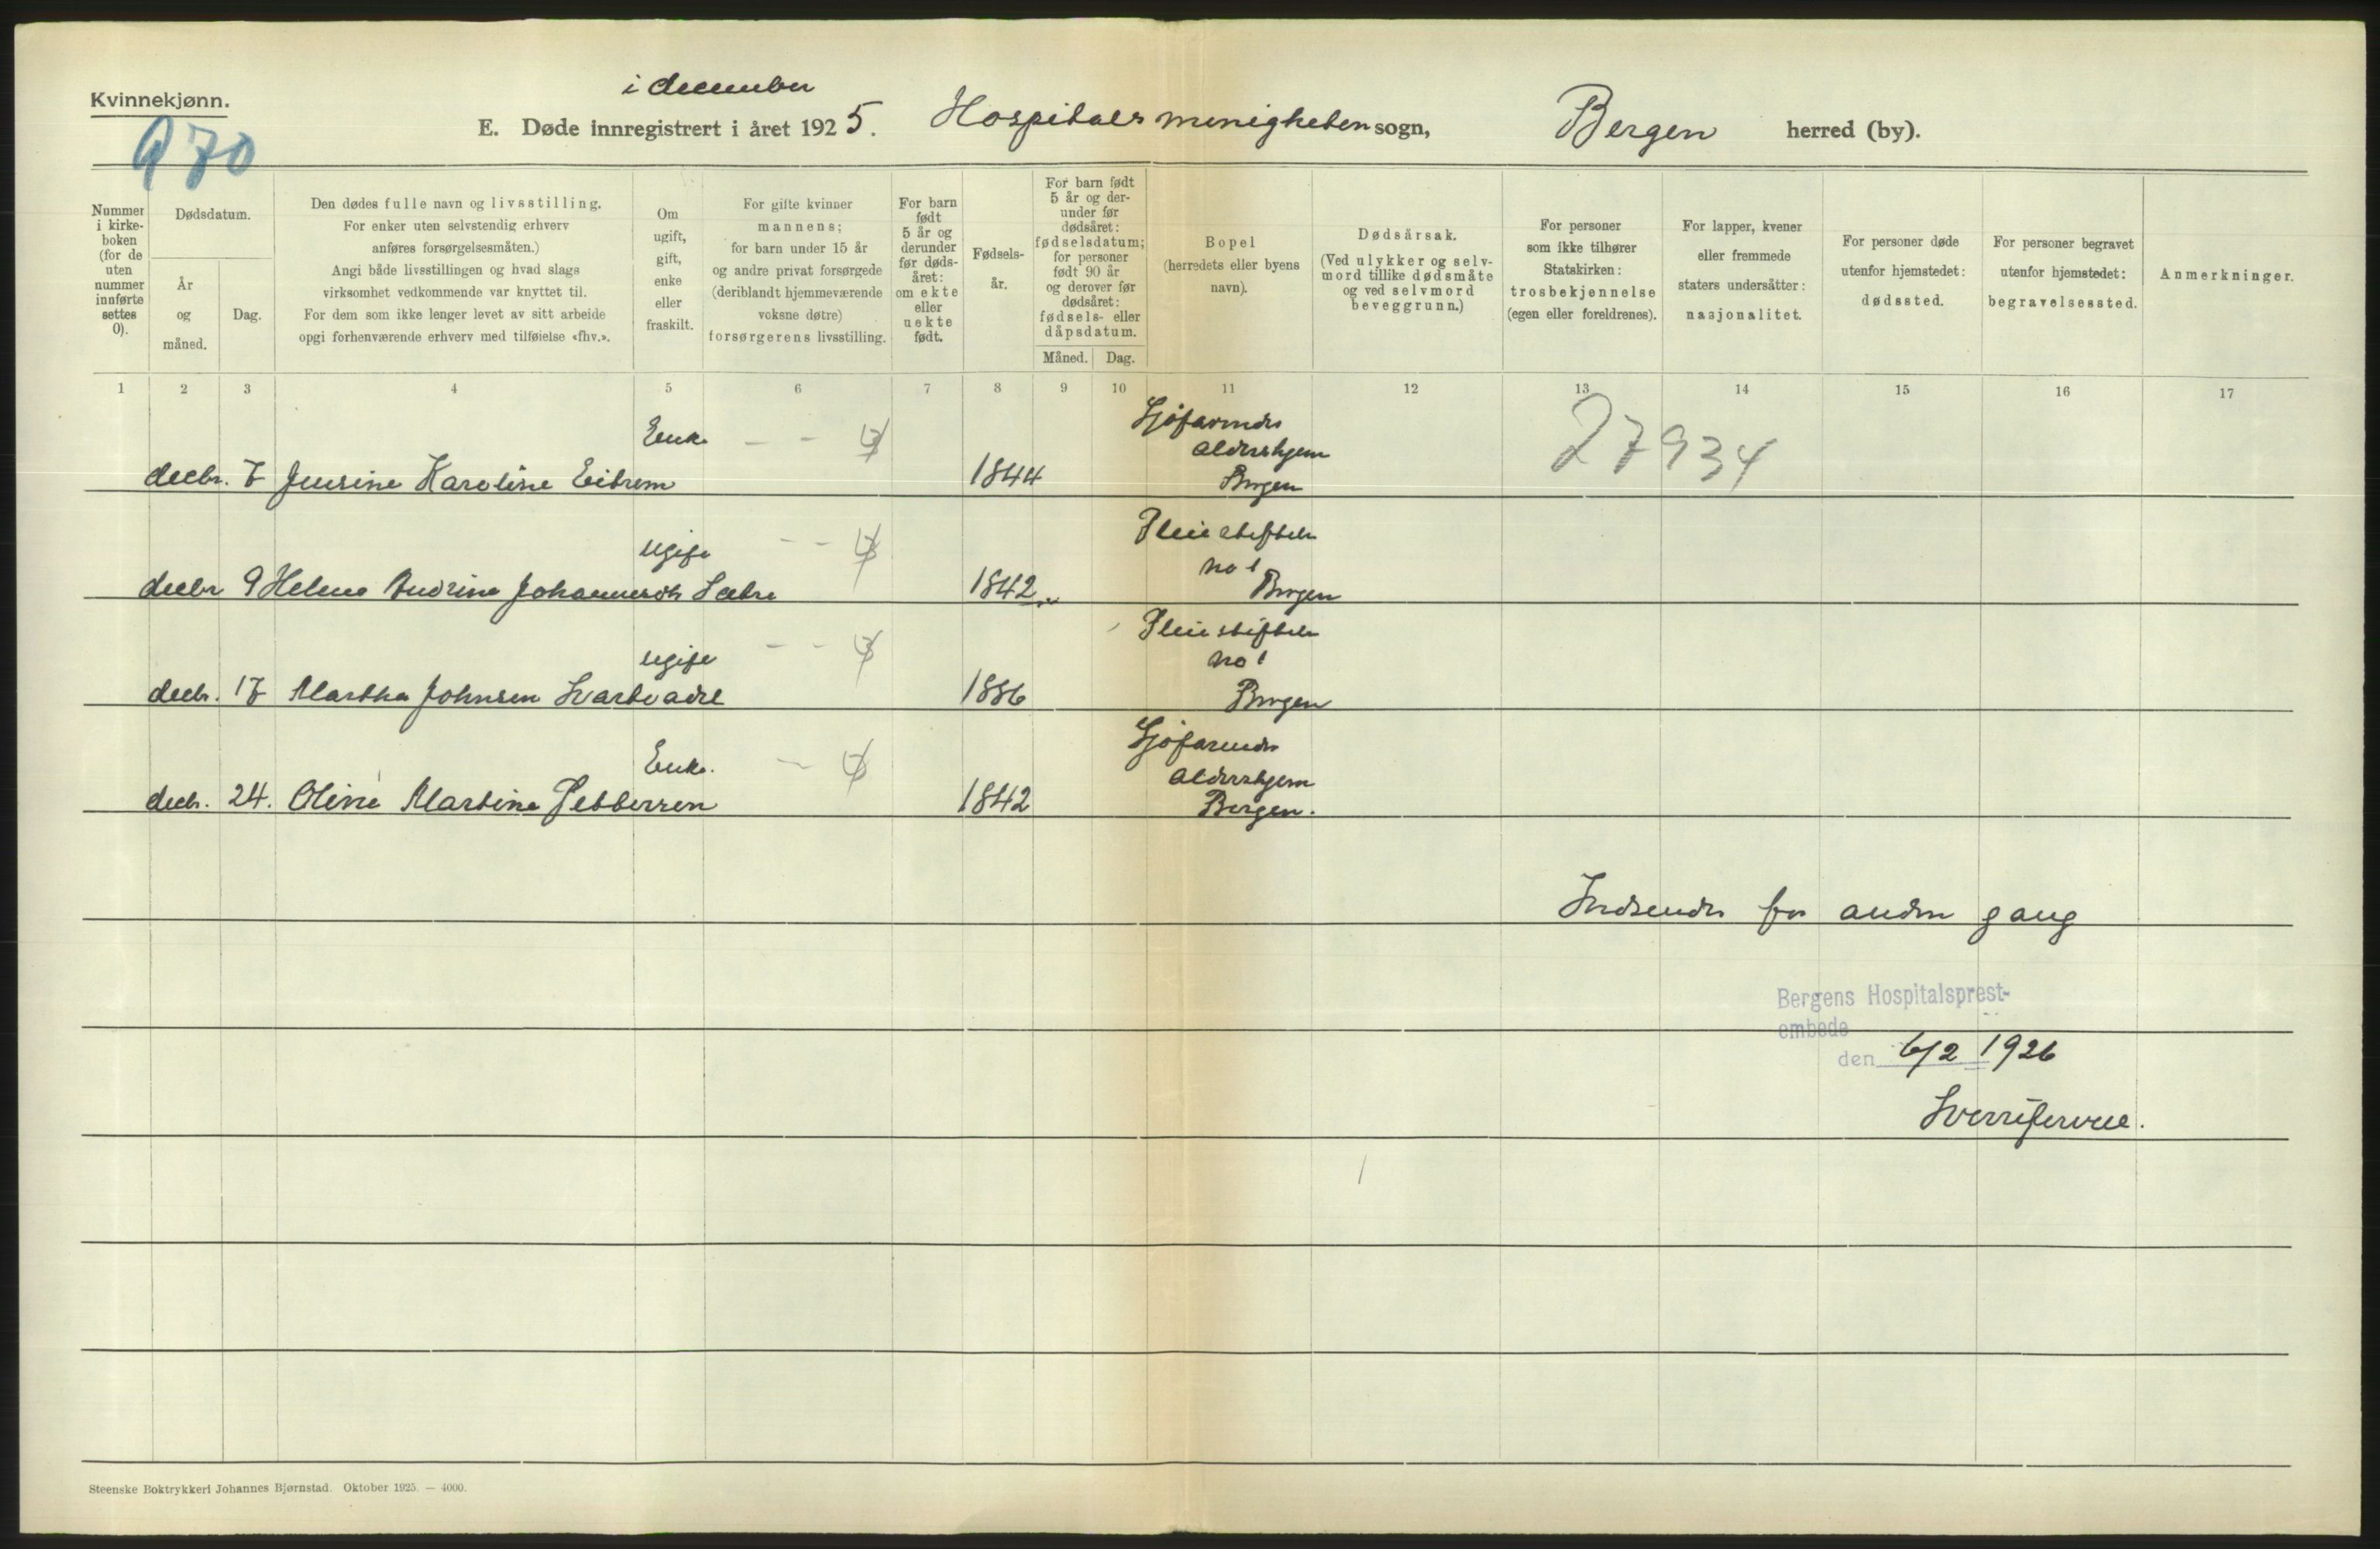 Kvinnekjønn.
970
i december
E. Døde innregistrert i året 1925. Hospitalsmenigheten sogn, Bergen herred (by).
Nummer i kirke-boken (for de uten nummer innførte settes 0).
Dødsdatum.
År og måned.
Dag.
Den dødes fulle navn og livsstilling.
For enker uten selvstendig erhverv
anføres forsørgelsesmåten.)
Angi både livsstillingen og hvad slags
virksomhet vedkommende var knyttet til.
For dem som ikke lenger levet av sitt arbeide
opgi forhenværende erhverv med tilføielse «fhv.».
Om ugift, gift, enke eller fraskilt.
For gifte kvinner
mannens;
for barn under 15 år
og andre privat forsørgede
(deriblandt hjemmeværende
voksne døtre)
forsørgerens livsstilling.
For barn født 5 år og derunder før døds-året: om ekte eller uekte født.
Fødsels-år.
For barn født 5 år og der-under før dødsåret: fødselsdatum; for personer født 90 år og derover før dødsåret: fødsels- eller dåpsdatum.
Måned. Dag.
Bopel
(herredets eller byens
navn).
Dødsårsak.
(Ved ulykker og selv-
mord tillike dødsmåte
og ved selvmord
beveggrunn.)
For personer
som ikke tilhører
Statskirken:
trosbekjennelse
(egen eller foreldrenes).
For lapper, kvener
eller fremmede
staters undersåtter:
nasjonalitet.
For personer døde
utenfor hjemstedet:
dødssted.
For personer begravet
utenfor hjemstedet:
begravelsessted.
Anmerkninger.
1 2 3 4 5 6 7 8 9 10 11 12 13 14 15 16 17
27934
decbr. 7 Jensine Karoline Eitrem Enke 1844 Sjøfarendes Aldershjem Bergen
decbr 9 Helene Andrine Johannesdtr Sæbø ugift 1842 Pleiestiftelse no 1 Bergen
decbr. 17 Martha Johnsen Svartvadel ugift 1886 Pleiestiftelse no 1 Bergen
decbr. 24. Oline Martine Pettersen Enke. 1842 Sjøfarendes Aldershjem Bergen.
Indsendes for anden gang
Bergens Hospitalsprest-
embede
den 6/2 1926
Steenske Boktrykkeri Johannes Bjørnstad. Oktober 1925. — 4000.